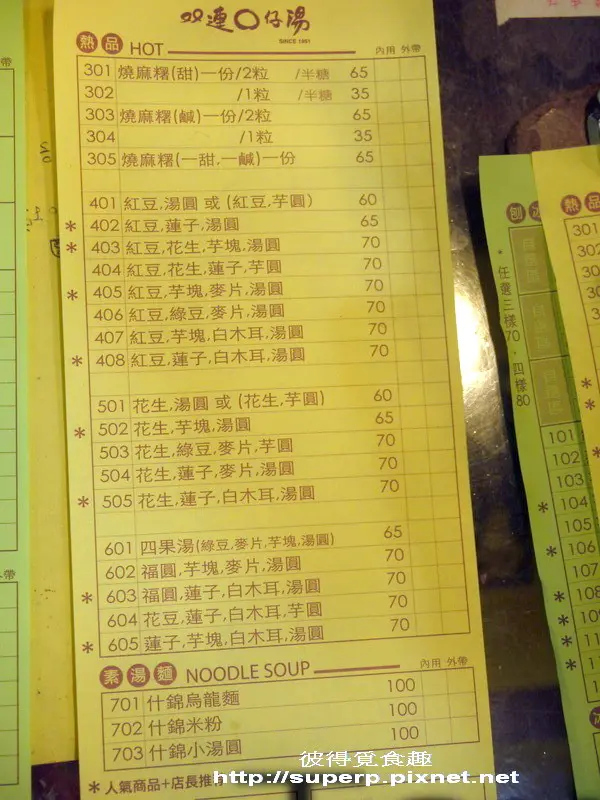 双連〇仔湯
SINCE 1951
熱品 HOT 內用 外帶
301 燒麻糬(甜)一份/2粒 /半糖 65
302 /1粒 /半糖 35
303 燒麻糬(鹹)一份/2粒 65
304 /1粒 35
305 燒麻糬(一甜,一鹹)一份 65
401 紅豆,湯圓 或 (紅豆,芋圓) 60
* 402 紅豆,蓮子,湯圓 65
* 403 紅豆,花生,芋塊,湯圓 70
404 紅豆,花生,蓮子,芋圓 70
* 405 紅豆,芋塊,麥片,湯圓 70
406 紅豆,綠豆,麥片,湯圓 70
407 紅豆,芋塊,白木耳,湯圓 70
* 408 紅豆,蓮子,白木耳,湯圓 70
501 花生,湯圓 或 (花生,芋圓) 60
* 502 花生,芋塊,湯圓 65
503 花生,綠豆,麥片,芋圓 70
504 花生,蓮子,麥片,湯圓 70
* 505 花生,蓮子,白木耳,湯圓 70
601 四果湯(綠豆,麥片,芋塊,湯圓) 65
602 福圓,芋塊,麥片,湯圓 70
* 603 福圓,蓮子,白木耳,湯圓 70
604 花豆,蓮子,白木耳,芋圓 70
* 605 蓮子,芋塊,白木耳,湯圓 70
素湯麵 NOODLE SOUP 內用 外帶
701 什錦烏龍麵 100
702 什錦米粉 100
703 什錦小湯圓 100
* 人氣商品+店長推荐
刨冰
任選三樣70,四樣80
101
102
103
* 104
105
* 106
107
* 108
* 109
* 110
* 111
熱品
301
302
303
外帶
彼得覓食趣
http://superp.pixnet.net